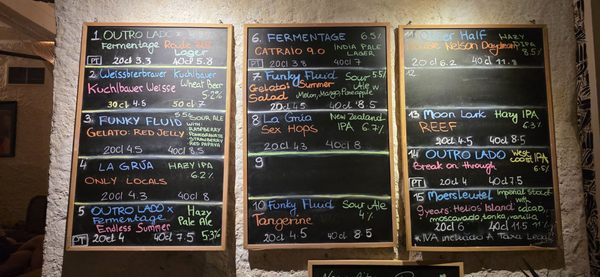 1 OUTRO LADO ×
Fermentage
Lager
PT 20cl 3.3 40cl 5.8
2 Weissbierbrauer Kuchlbauer
Kuchlbauer Weisse Wheat beer
5.2%
30cl 4.6 50cl 7
3 FUNKY FLUID 5.5%
SOUR ALE
WITH
RASPBERRY
STRAWBERRY
RED PAPAYA
GELATO: RED JELLY
20cl 4.5 40cl 8.5
4 LA GRÚA HAZY IPA
6.2%
ONLY LOCALS
20cl 4.3 40cl 8
5 OUTRO LADO × Hazy
Fermentage Pale Ale
Endless Summer
PT 20cl 4 40cl 7.5 5.3%
6. FERMENTAGE 6.5%
CATRAIO 9.0 INDIA PALE
LAGER
PT 20cl 3.8 40cl 7
7 Funky Fluid Sour 5.5%
Gelato: Summer Ale w
Salad Melon, Mango, Pineapple
20cl 4.5 40cl 8.5
8 La Grúa New Zealand
Sex Hops IPA 6.7%
20cl 4.3 40cl 8
9
10 Funky Fluid Sour Ale
Tangerine 4%
20cl 4.5 40cl 8.5
Other Half HAZY
Double Nelson Daydream IPA
8.5%
20cl 6.2 40cl 11.8
12
13 Moon Lark Hazy IPA
REEF 6.3%
20cl 4.5 40cl 8.5
14 OUTRO LADO West
coast IPA
Break on through 6.5%
PT 20cl 4 40cl 7.5
15 Moersleutel Imperial Stout
with
9 years: Helios' Island cacao,
moscavado, tonka, vanilla
20cl 6 40cl 11.5 11%
*IVA incluido Á Taxa Legal